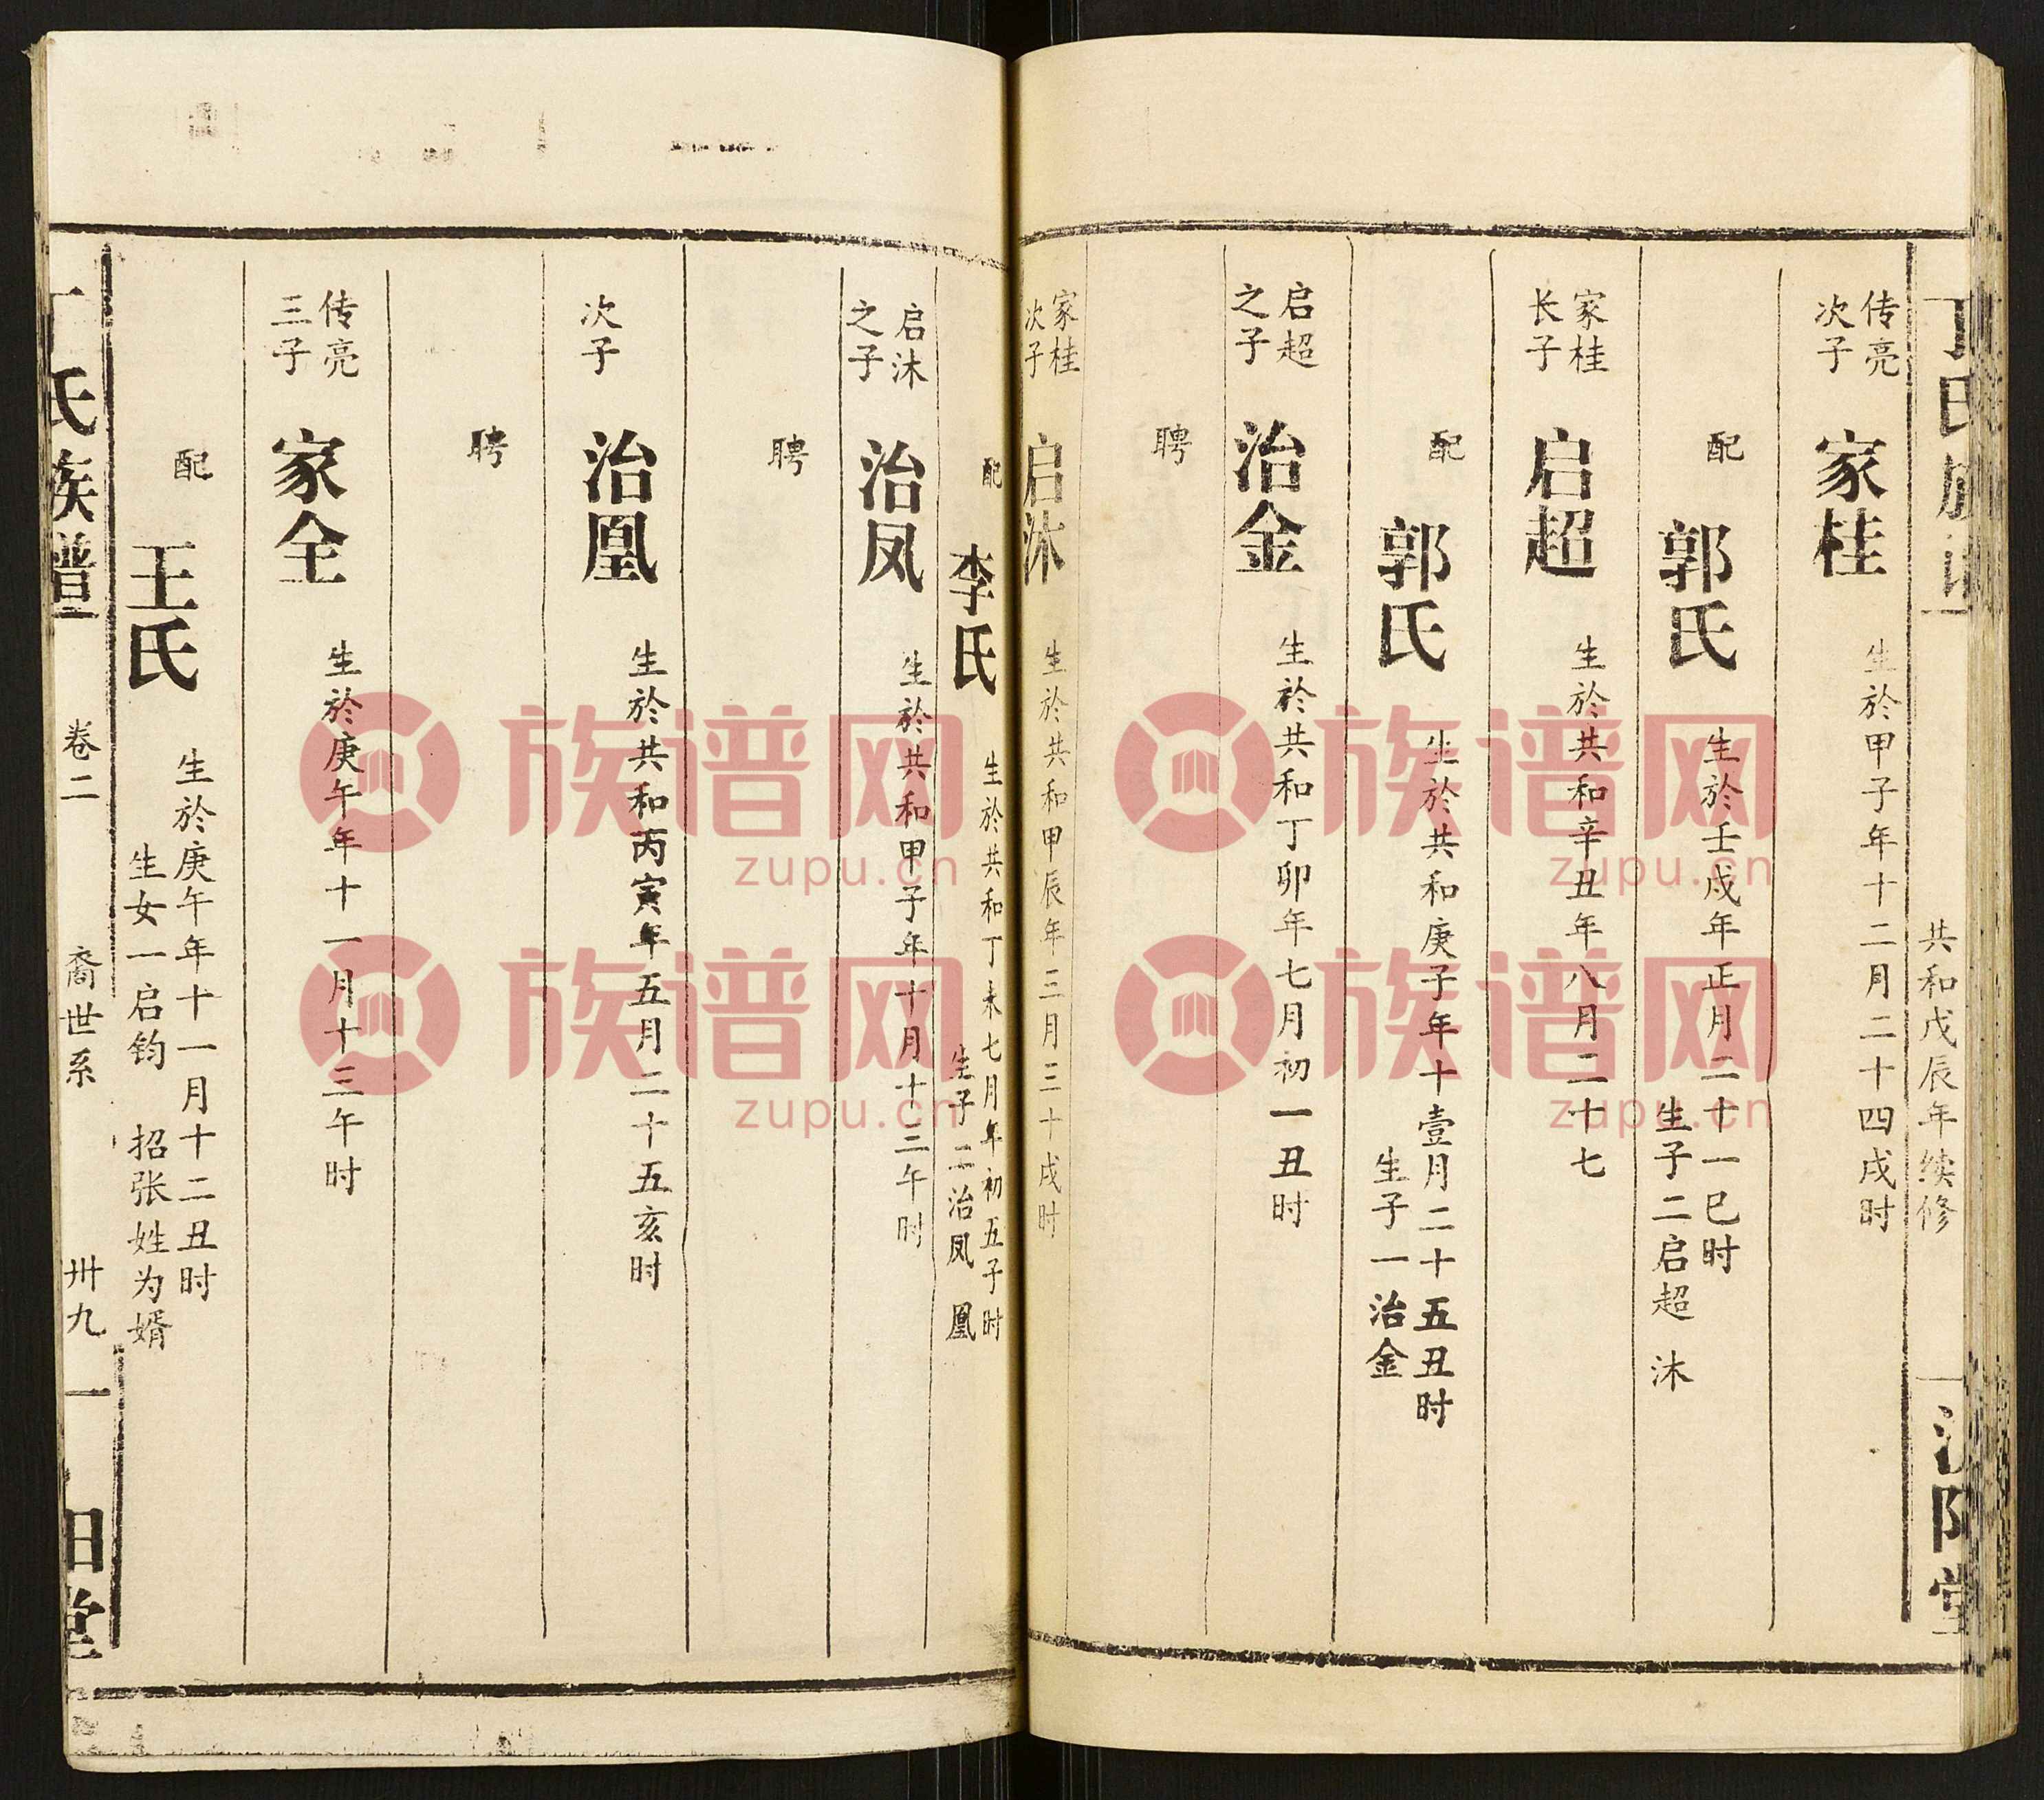 丁氏族谱
共和戊辰年续修
阳堂
传亮次子 家桂 生於甲子年十二月二十四戌时
配 郭氏 生於壬戌年正月二十一巳时
生子二启超 沐
家桂长子 启超 生於共和辛丑年八月二十七
配 郭氏 生於共和庚子年十壹月二十五丑时
生子一治金
启超之子 治金 生於共和丁卯年七月初一丑时
聘
家桂次子 启沐 生於共和甲辰年三月三十戌时
配 李氏 生於共和丁未七月年初五子时
生子二治凤 凰
启沐之子 治凤 生於共和甲子年十月十三午时
聘
次子 治凰 生於共和丙寅年五月二十五亥时
聘
传亮三子 家全 生於庚午年十一月十三午时
配 王氏 生於庚午年十一月十二丑时
生女一启钧 招张姓为婿
丁氏族谱 卷二 裔世系 卅九 阳堂
族谱网 zupu.cn
族谱网 zupu.cn
族谱网 zupu.cn
族谱网 zupu.cn